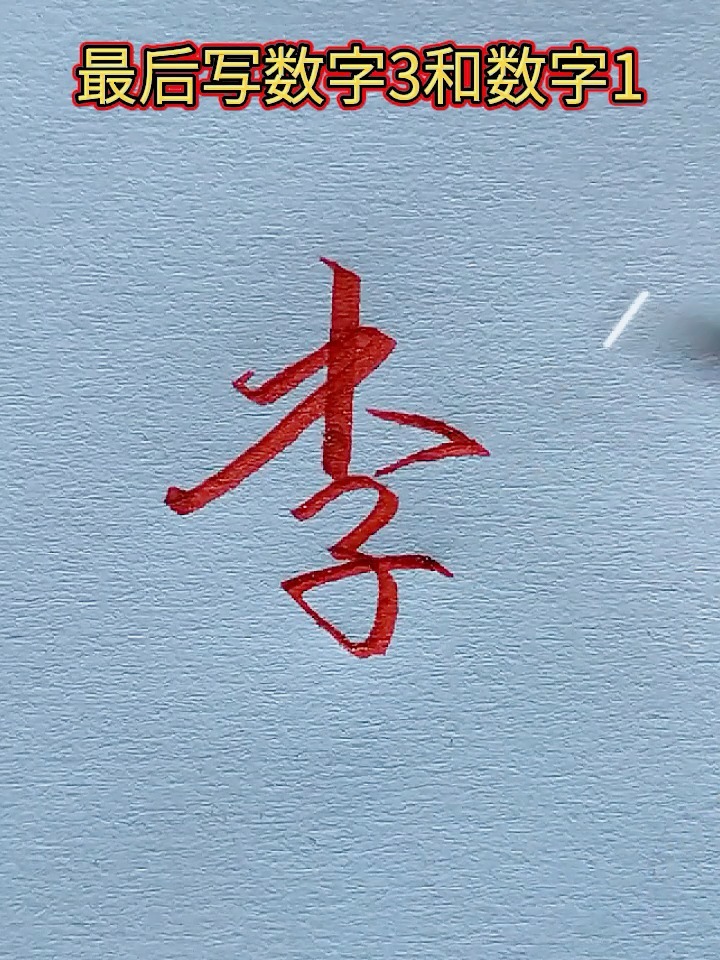 最后写数字3和数字1
李